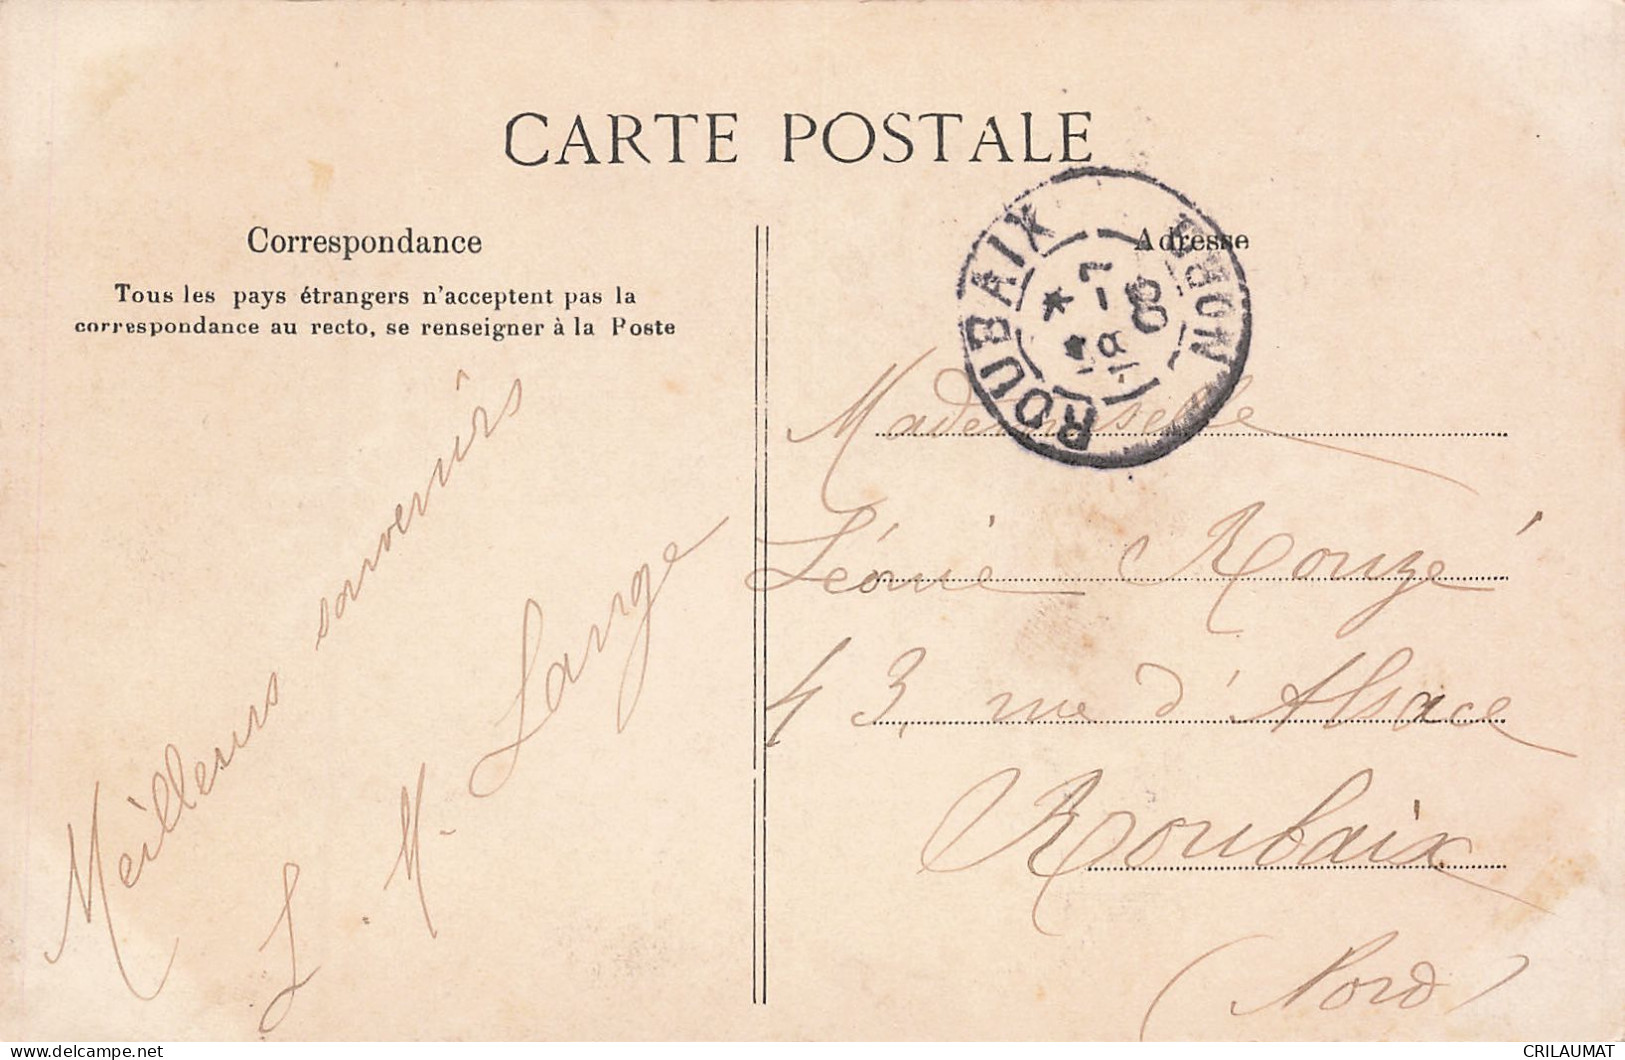 CARTE POSTALE
Correspondance
Tous les pays étrangers n'acceptent pas la
correspondance au recto, se renseigner à la Poste
Meilleurs souvenirs
L. M. Lange
Adresse
ROUBAIX
NORD
Mademoiselle
Léonie Rouzé
43, rue d'Alsace
Roubaix
(Nord)
delcampe.net
CRILAUMAT